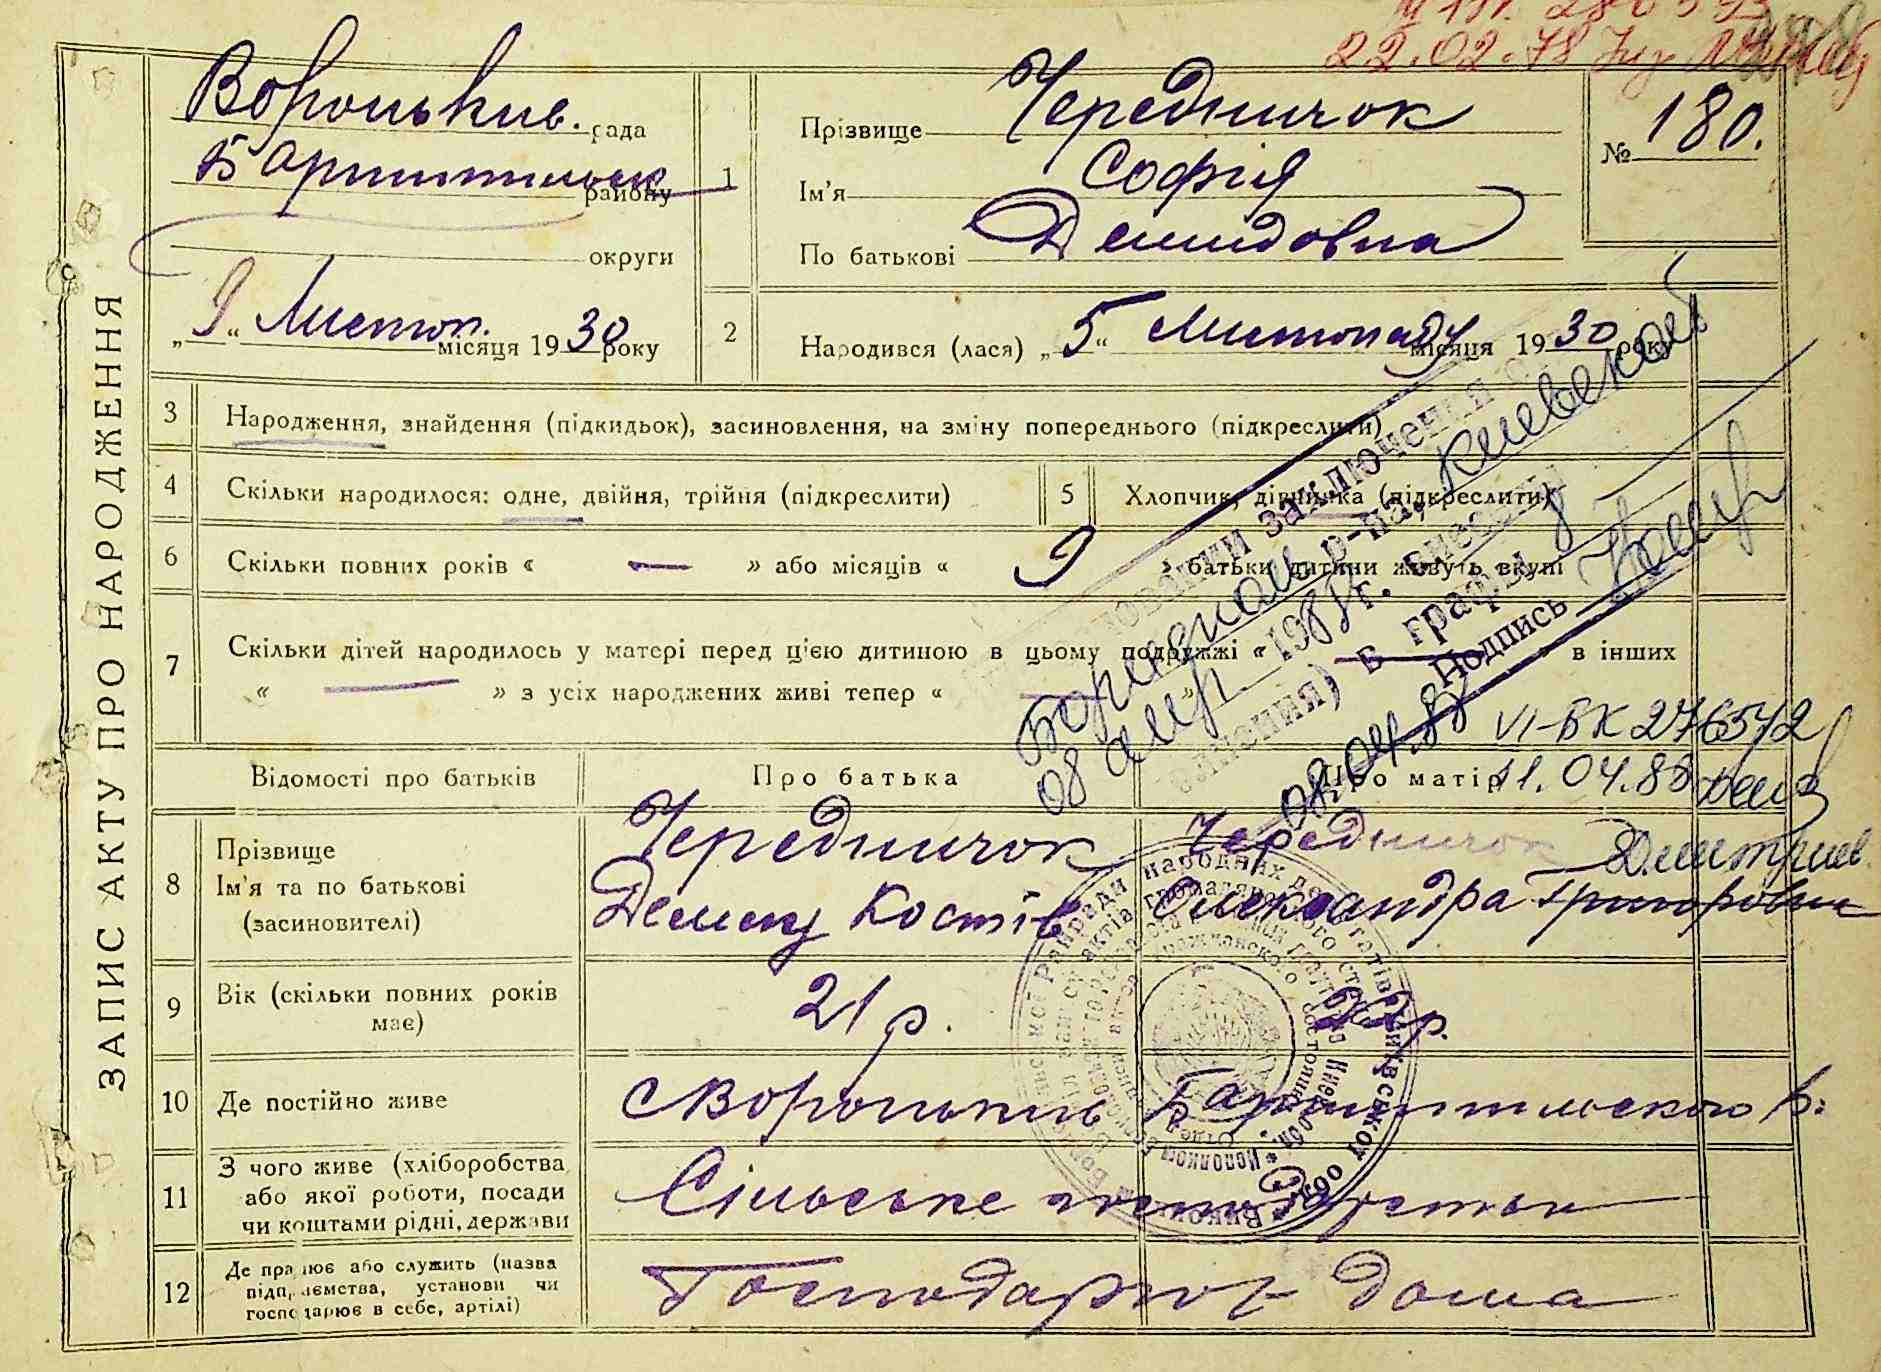 22.02.78
ЗАПИС АКТУ ПРО НАРОДЖЕННЯ
Вороньків. рада
Баришпільськ району
округи
„ 9 “ Листоп. місяця 1930 року
1
Прізвище Чередничок
Ім'я Софія
По батькові Демидовна
№ 180.
2
Народився (лася) „ 5 “ Листопаду місяця 1930 року
3 Народження, знайдення (підкидьок), засиновлення, на зміну попереднього (підкреслити)
4 Скільки народилося: одне, двійня, трійня (підкреслити)
5 Хлопчик, дівчинка (підкреслити)
6 Скільки повних років « — » або місяців « 9 » батьки дитини живуть вкупі
7 Скільки дітей народилось у матері перед цією дитиною в цьому подружжі « — » в інших
« — » з усіх народжених живі тепер « — »
заключения
р-на, Киевской
08 апр 1988 г. внесены
в графы 8
Подпись
08.04.88
VI-БК 276572
11.04.88
Відомості про батьків
Про батька
Про матір
8 Прізвище
Ім'я та по батькові
(засиновителі)
Чередничок
Демид Костів
Чередничок
Олександра Григоровна
Дмитриев.
9 Вік (скільки повних років має)
21 р.
р.
10 Де постійно живе
с Вороньків Баришпільського р.
11 З чого живе (хліборобства
або якої роботи, посади
чи коштами рідні, держави
Сільське господарство
12 Де працює або служить (назва
підприємства, установи чи
господарює в себе, артілі)
Господарюют дома